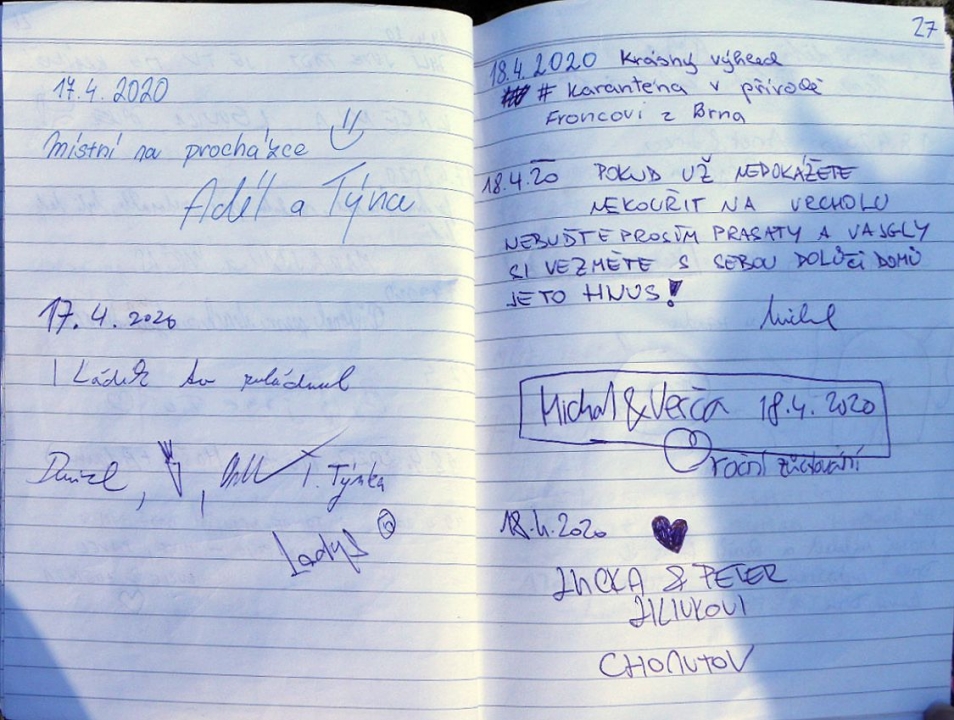 17.4.2020
místní na procházce
Adél a Týnca
17.4.2020
I Láďa to zvládnul
Daniel,
T. Týnka
Ladys
27
18.4.2020 Krásný výhled
# Karanténa v přírodě
Froncovi z Brna
18.4.20 POKUD UŽ NEDOKÁŽETE
NEKOUŘIT NA VRCHOLU
NEBUĎTE PROSÍM PRASATY A VAJGLY
SI VEZMĚTE S SEBOU DOLŮ či DOMŮ
JE TO HNUS!
Michal & Verča 18.4.2020
roční
18.4.2020
LUCKA & PETER
CHOMUTOV